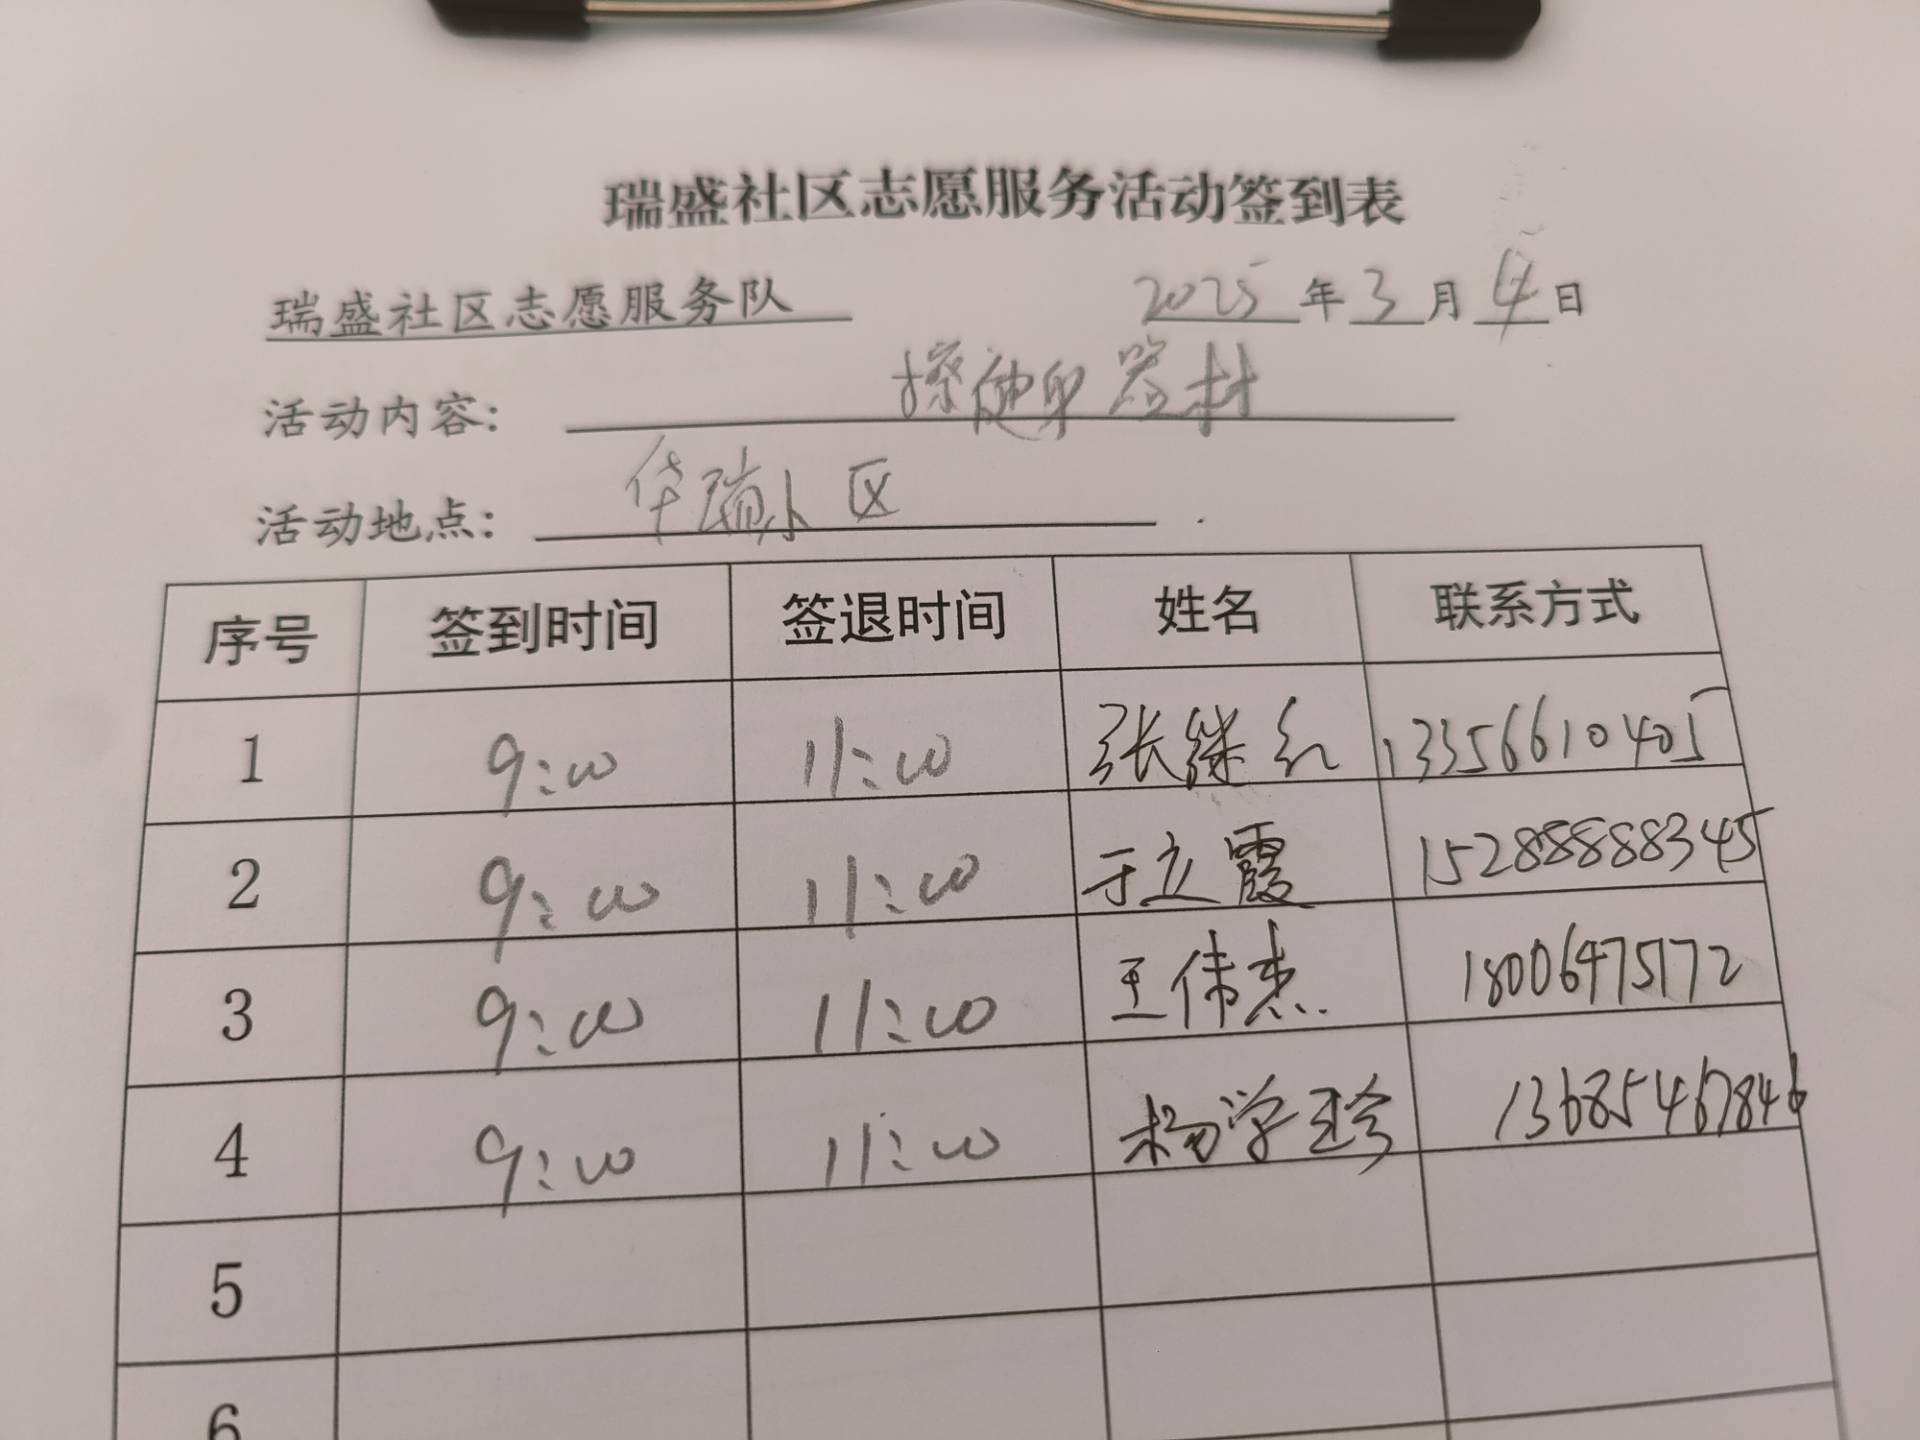 瑞盛社区志愿服务活动签到表
瑞盛社区志愿服务队 2025年3月4日
活动内容: 擦健身器材
活动地点: 华瑞小区
序号 签到时间 签退时间 姓名 联系方式
1 9:00 11:00 张继红 13356610405
2 9:00 11:00 于立霞 15288888345
3 9:00 11:00 王伟杰 18006475172
4 9:00 11:00 杨学珍 13685467846
5
6